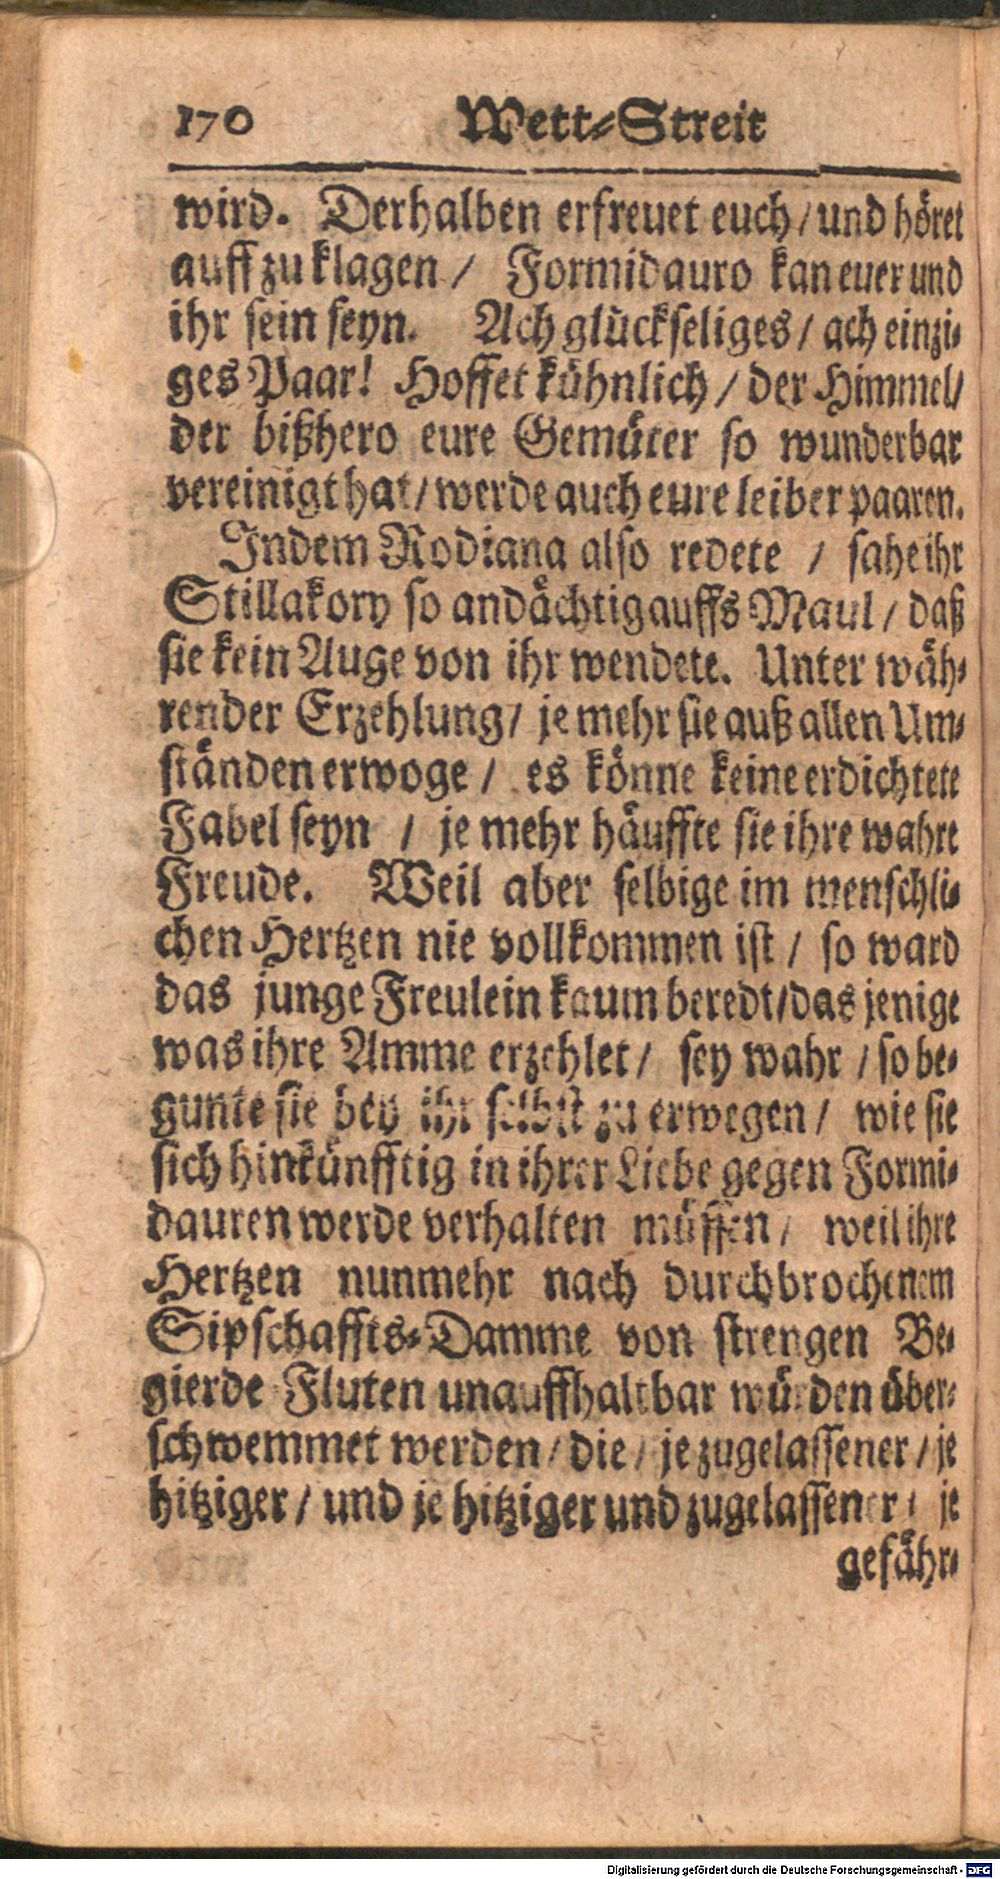 170 Wett-Streit
wird. Derhalben erfreuet euch / und höret
auff zu klagen / Formidauro kan euer und
ihr sein seyn. Ach glückseliges / ach einzi-
ges Paar! Hoffet kühnlich / der Himmel /
der bißhero eure Gemüter so wunderbar
vereinigt hat / werde auch eure leiber paaren.
Indem Rodiana also redete / sahe ihr
Stillakory so andächtig auffs Maul / daß
sie kein Auge von ihr wendete. Unter wäh-
render Erzehlung / je mehr sie auß allen Um-
ständen erwoge / es könne keine erdichtete
Fabel seyn / je mehr häuffte sie ihre wahre
Freude. Weil aber selbige im menschli-
chen Hertzen nie vollkommen ist / so ward
das junge Freulein kaum beredt / das jenige
was ihre Amme erzehlet / sey wahr / so be-
gunte sie bey ihr selbst zu erwegen / wie sie
sich hinkünfftig in ihrer Liebe gegen Formi-
dauren werde verhalten müssen / weil ihre
Hertzen nunmehr nach durchbrochenem
Sipschaffts-Damme von strengen Be-
gierde Fluten unauffhaltbar würden über-
schwemmet werden / die / je zugelassener / je
hitziger / und je hitziger und zugelassener / je
gefähr-
Digitalisierung gefördert durch die Deutsche Forschungsgemeinschaft - DFG